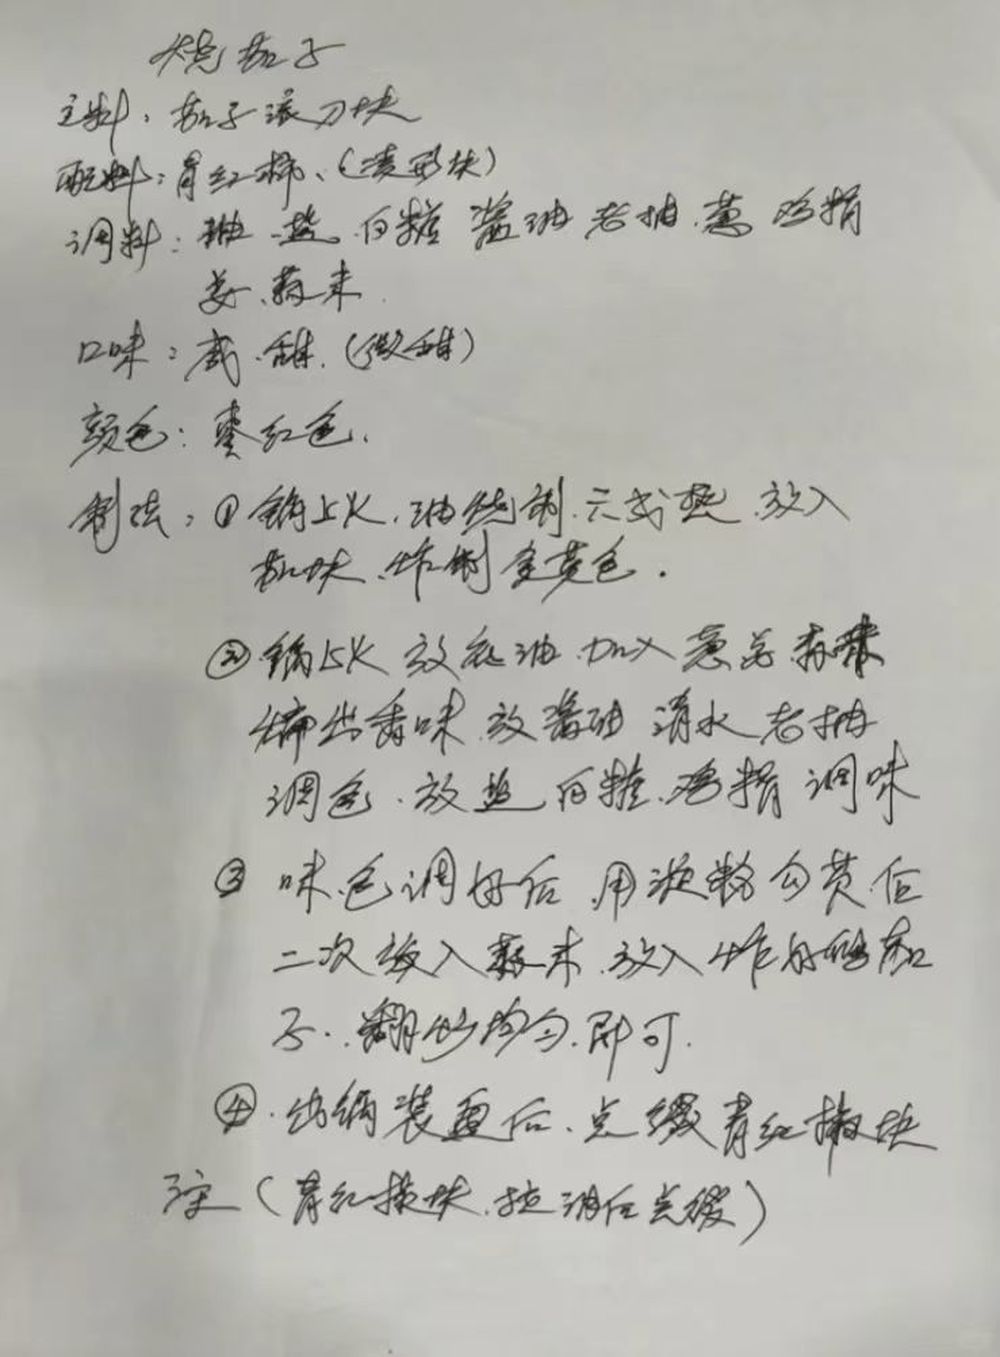 烧茄子
主料：茄子滚刀块
配料：青红椒、（菱形块）
调料：油、盐、白糖 酱油 老抽、葱 鸡精
姜、蒜末
口味：咸、甜．（微甜）
颜色：枣红色．
制法：① 锅上火．油烧制．六成热．放入
茄块、炸制金黄色．
② 锅上火 放底油 加入 葱姜蒜末
煸出香味 放酱油 清水 老抽
调色、放盐 白糖、鸡精 调味
③ 味、色调好后 用淀粉勾芡后
二次放入蒜末 放入炸好的茄
子．翻炒均匀．即可．
④．出锅装盘后、点缀青红椒块
注（青红椒块、拉油后点缀）